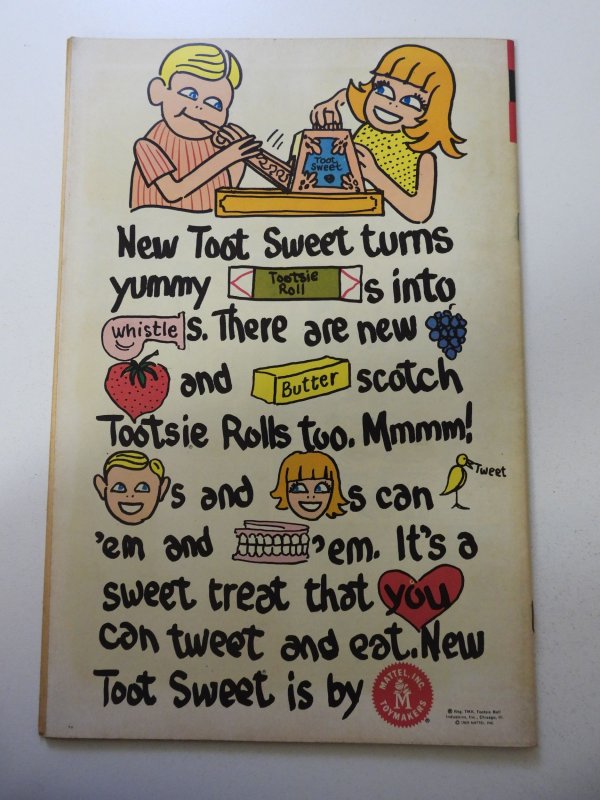 Toot
Sweet
New Toot Sweet turns
yummy Tootsie Roll s into
whistle s. There are new
and Butter scotch
Tootsie Rolls too. Mmmm!
s and s can Tweet
'em and 'em. It's a
sweet treat that you
can tweet and eat. New
Toot Sweet is by MATTEL, INC. M TOYMAKERS ®
® Reg. TMK. Tootsie Roll
Industries, Inc., Chicago, Ill.
© 1969 MATTEL, INC.